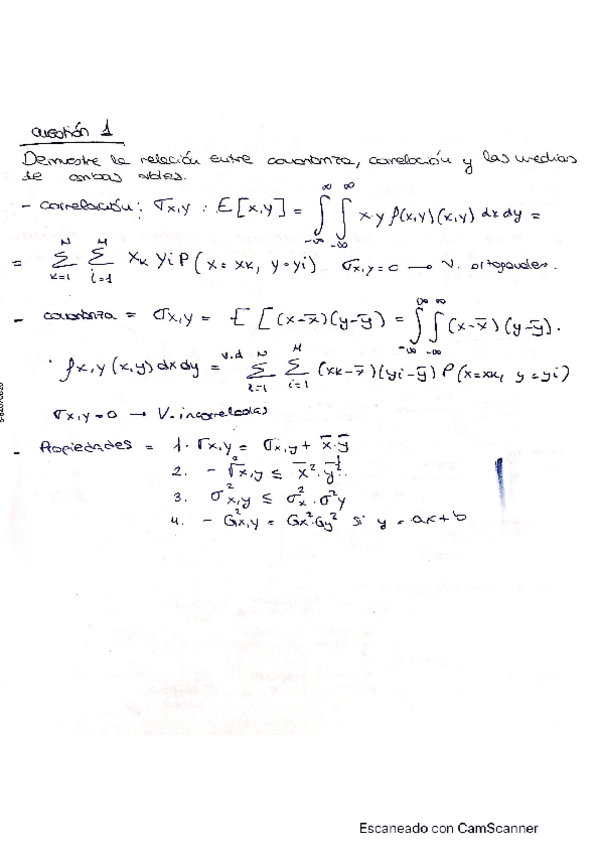 cuestión 1
Demuestre la relación entre covarianza, correlación y las medias
de ambas vbles.
- correlación: rx,y : E[x,y] = ∫∞-∞ ∫∞-∞ x·y f(x,y)(x,y) dxdy =
= ΣN k=1 ΣM i=1 xk yi P(x=xk, y=yi) σx,y=0 → V. ortogonales.
- covarianza = σx,y = E[(x-x̄)(y-ȳ) = ∫∞-∞ ∫∞-∞ (x-x̄)(y-ȳ).
· fx,y(x,y)dxdy = v.d ΣN k=1 ΣM i=1 (xk-x̄)(yi-ȳ) P(x=xk, y=yi)
σx,y=0 → V. incorreladas
- Propiedades = 1. rx,y = σx,y + x̄.ȳ
2. - r²x,y ≤ x̄². ȳ²
3. σ²x,y ≤ σ²x . σ²y
4. - G²x,y = Gx².Gy² si y = ax+b
Escaneado con CamScanner